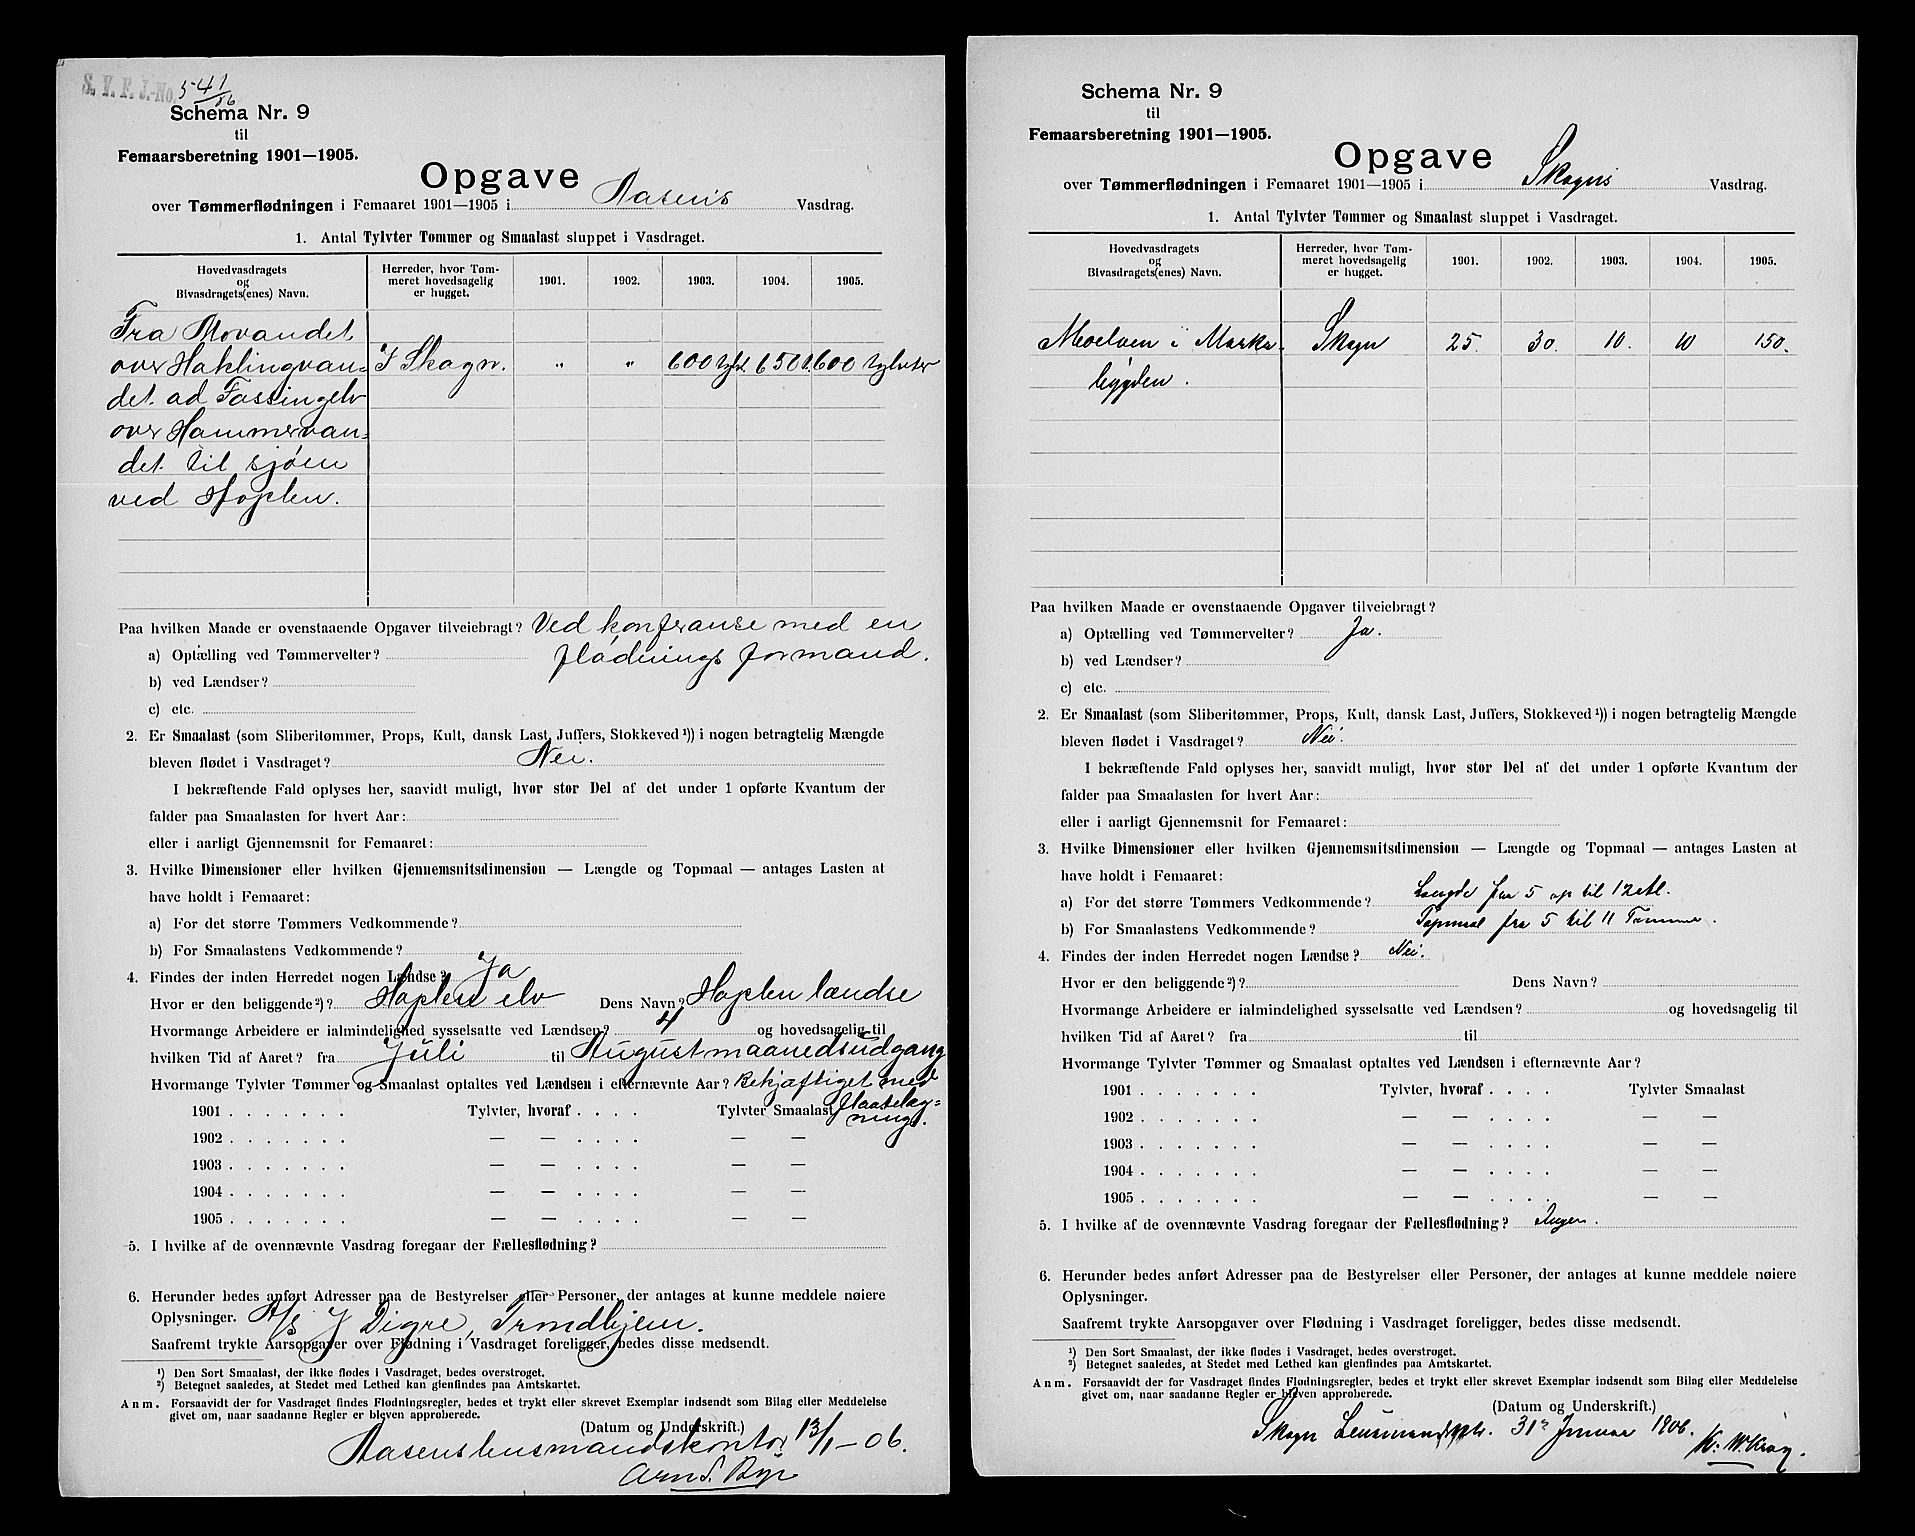 S. V. F. J.-No. 541/06
Schema Nr. 9
til
Femaarsberetning 1901—1905.
Opgave
over Tømmerflødningen i Femaaret 1901—1905 i Aasens Vasdrag.
1. Antal Tylvter Tømmer og Smaalast sluppet i Vasdraget.
Hovedvasdragets
og
Bivasdragets(enes) Navn.
Herreder, hvor Tøm-
meret hovedsagelig
er hugget.
1901. 1902. 1903. 1904. 1905.
Fra Movandet
over Hoklingvan= I Skogn. " " 600 tylvt. 650 t. 600 tylvter
det ad Fossingelv
over Hammervan=
det til sjøen
ved Hoplen.
Paa hvilken Maade er ovenstaaende Opgaver tilveiebragt? Ved konferanse med en
a) Optælling ved Tømmervelter? flødnings formand.
b) ved Lændser?
c) etc.
2. Er Smaalast (som Sliberitømmer, Props, Kult, dansk Last, Juffers, Stokkeved ¹)) i nogen betragtelig Mængde
bleven flødet i Vasdraget? Nei.
I bekræftende Fald oplyses her, saavidt muligt, hvor stor Del af det under 1 opførte Kvantum der
falder paa Smaalasten for hvert Aar:
eller i aarligt Gjennemsnit for Femaaret:
3. Hvilke Dimensioner eller hvilken Gjennemsnitsdimension — Længde og Topmaal — antages Lasten at
have holdt i Femaaret:
a) For det større Tømmers Vedkommende?
b) For Smaalastens Vedkommende?
4. Findes der inden Herredet nogen Lændse? Ja
Hvor er den beliggende²)? Hoplen elv Dens Navn? Hoplen lændse
Hvormange Arbeidere er ialmindelighed sysselsatte ved Lændsen? 4 og hovedsagelig til
hvilken Tid af Aaret? fra Juli til August maanedsudgang
Hvormange Tylvter Tømmer og Smaalast optaltes ved Lændsen i efternævnte Aar? Bekjæftiget med
1901 . . . . . . . Tylvter, hvoraf . . . . Tylvter Smaalast flaatelæg=
ning.
1902 . . . . . . . — — . . . . — —
1903 . . . . . . . — — . . . . — —
1904 . . . . . . . — — . . . . — —
1905 . . . . . . . — — . . . . — —
5. I hvilke af de ovennævnte Vasdrag foregaar der Fællesflødning?
6. Herunder bedes anført Adresser paa de Bestyrelser eller Personer, der antages at kunne meddele nøiere
Oplysninger. A/s J Digre, Trondhjem.
Saafremt trykte Aarsopgaver over Flødning i Vasdraget foreligger, bedes disse medsendt.
¹) Den Sort Smaalast, der ikke flødes i Vasdraget, bedes overstroget.
²) Betegnet saaledes, at Stedet med Lethed kan gjenfindes paa Amtskartet.
Anm. Forsaavidt der for Vasdraget findes Flødningsregler, bedes et trykt eller skrevet Exemplar indsendt som Bilag eller Meddelelse
givet om, naar saadanne Regler er bleven approberede.
(Datum og Underskrift.)
Aasens lensmandskontor 13/1—06.
Arn S. Rye
Schema Nr. 9
til
Femaarsberetning 1901—1905.
Opgave
over Tømmerflødningen i Femaaret 1901—1905 i Skogns Vasdrag.
1. Antal Tylvter Tømmer og Smaalast sluppet i Vasdraget.
Hovedvasdragets
og
Bivasdragets(enes) Navn.
Herreder, hvor Tøm-
meret hovedsagelig
er hugget.
1901. 1902. 1903. 1904. 1905.
Moelven i Marka- Skogn 25. 30. 10. 10 150.
bygden.
Paa hvilken Maade er ovenstaaende Opgaver tilveiebragt?
a) Optælling ved Tømmervelter? Ja.
b) ved Lændser?
c) etc.
2. Er Smaalast (som Sliberitømmer, Props, Kult, dansk Last, Juffers, Stokkeved ¹)) i nogen betragtelig Mængde
bleven flødet i Vasdraget? Nei.
I bekræftende Fald oplyses her, saavidt muligt, hvor stor Del af det under 1 opførte Kvantum der
falder paa Smaalasten for hvert Aar:
eller i aarligt Gjennemsnit for Femaaret:
3. Hvilke Dimensioner eller hvilken Gjennemsnitsdimension — Længde og Topmaal — antages Lasten at
have holdt i Femaaret:
a) For det større Tømmers Vedkommende? Længde fra 5 op til 12 al.
b) For Smaalastens Vedkommende? Topmaal fra 5 til 11 Tommer.
4. Findes der inden Herredet nogen Lændse? Nei.
Hvor er den beliggende²)? Dens Navn?
Hvormange Arbeidere er ialmindelighed sysselsatte ved Lændsen? og hovedsagelig til
hvilken Tid af Aaret? fra til
Hvormange Tylvter Tømmer og Smaalast optaltes ved Lændsen i efternævnte Aar?
1901 . . . . . . . Tylvter, hvoraf . . . . Tylvter Smaalast
1902 . . . . . . . — — . . . . — —
1903 . . . . . . . — — . . . . — —
1904 . . . . . . . — — . . . . — —
1905 . . . . . . . — — . . . . — —
5. I hvilke af de ovennævnte Vasdrag foregaar der Fællesflødning? Ingen.
6. Herunder bedes anført Adresser paa de Bestyrelser eller Personer, der antages at kunne meddele nøiere
Oplysninger.
Saafremt trykte Aarsopgaver over Flødning i Vasdraget foreligger, bedes disse medsendt.
¹) Den Sort Smaalast, der ikke flødes i Vasdraget, bedes overstroget.
²) Betegnet saaledes, at Stedet med Lethed kan gjenfindes paa Amtskartet.
Anm. Forsaavidt der for Vasdraget findes Flødningsregler, bedes et trykt eller skrevet Exemplar indsendt som Bilag eller Meddelelse
givet om, naar saadanne Regler er bleven approberede.
(Datum og Underskrift.)
Skogn 31te Januar 1906. K. W. Krog.